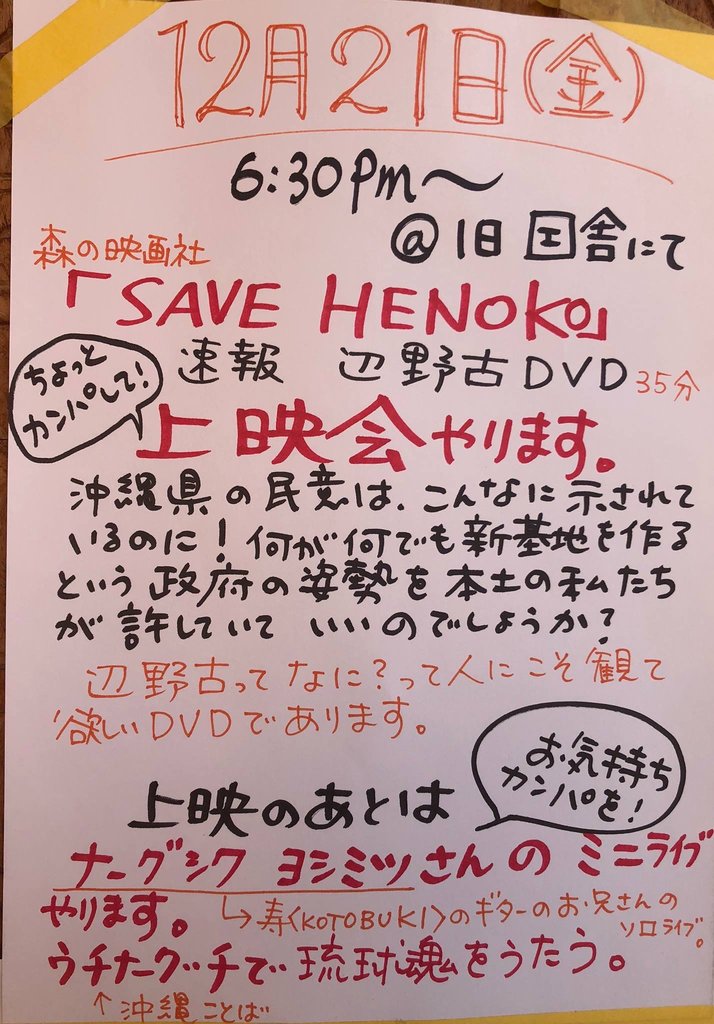 12月21日(金)
6:30pm〜
@旧国舎にて
森の映画社
「SAVE HENOKO」
速報 辺野古DVD 35分
ちょっと
カンパして!
上映会やります。
沖縄県の民意は、こんなに示されて
いるのに!何が何でも新基地を作る
という政府の姿勢を本土の私たち
が許していていいのでしょうか?
辺野古ってなに?って人にこそ観て
欲しいDVDであります。
お気持ち
カンパを!
上映のあとは
ナーグシク ヨシミツさんのミニライブ
やります。
↳寿〈KOTOBUKI〉のギターのお兄さんの
ソロライブ。
ウチナーグッチで琉球魂をうたう。
↑沖縄ことば